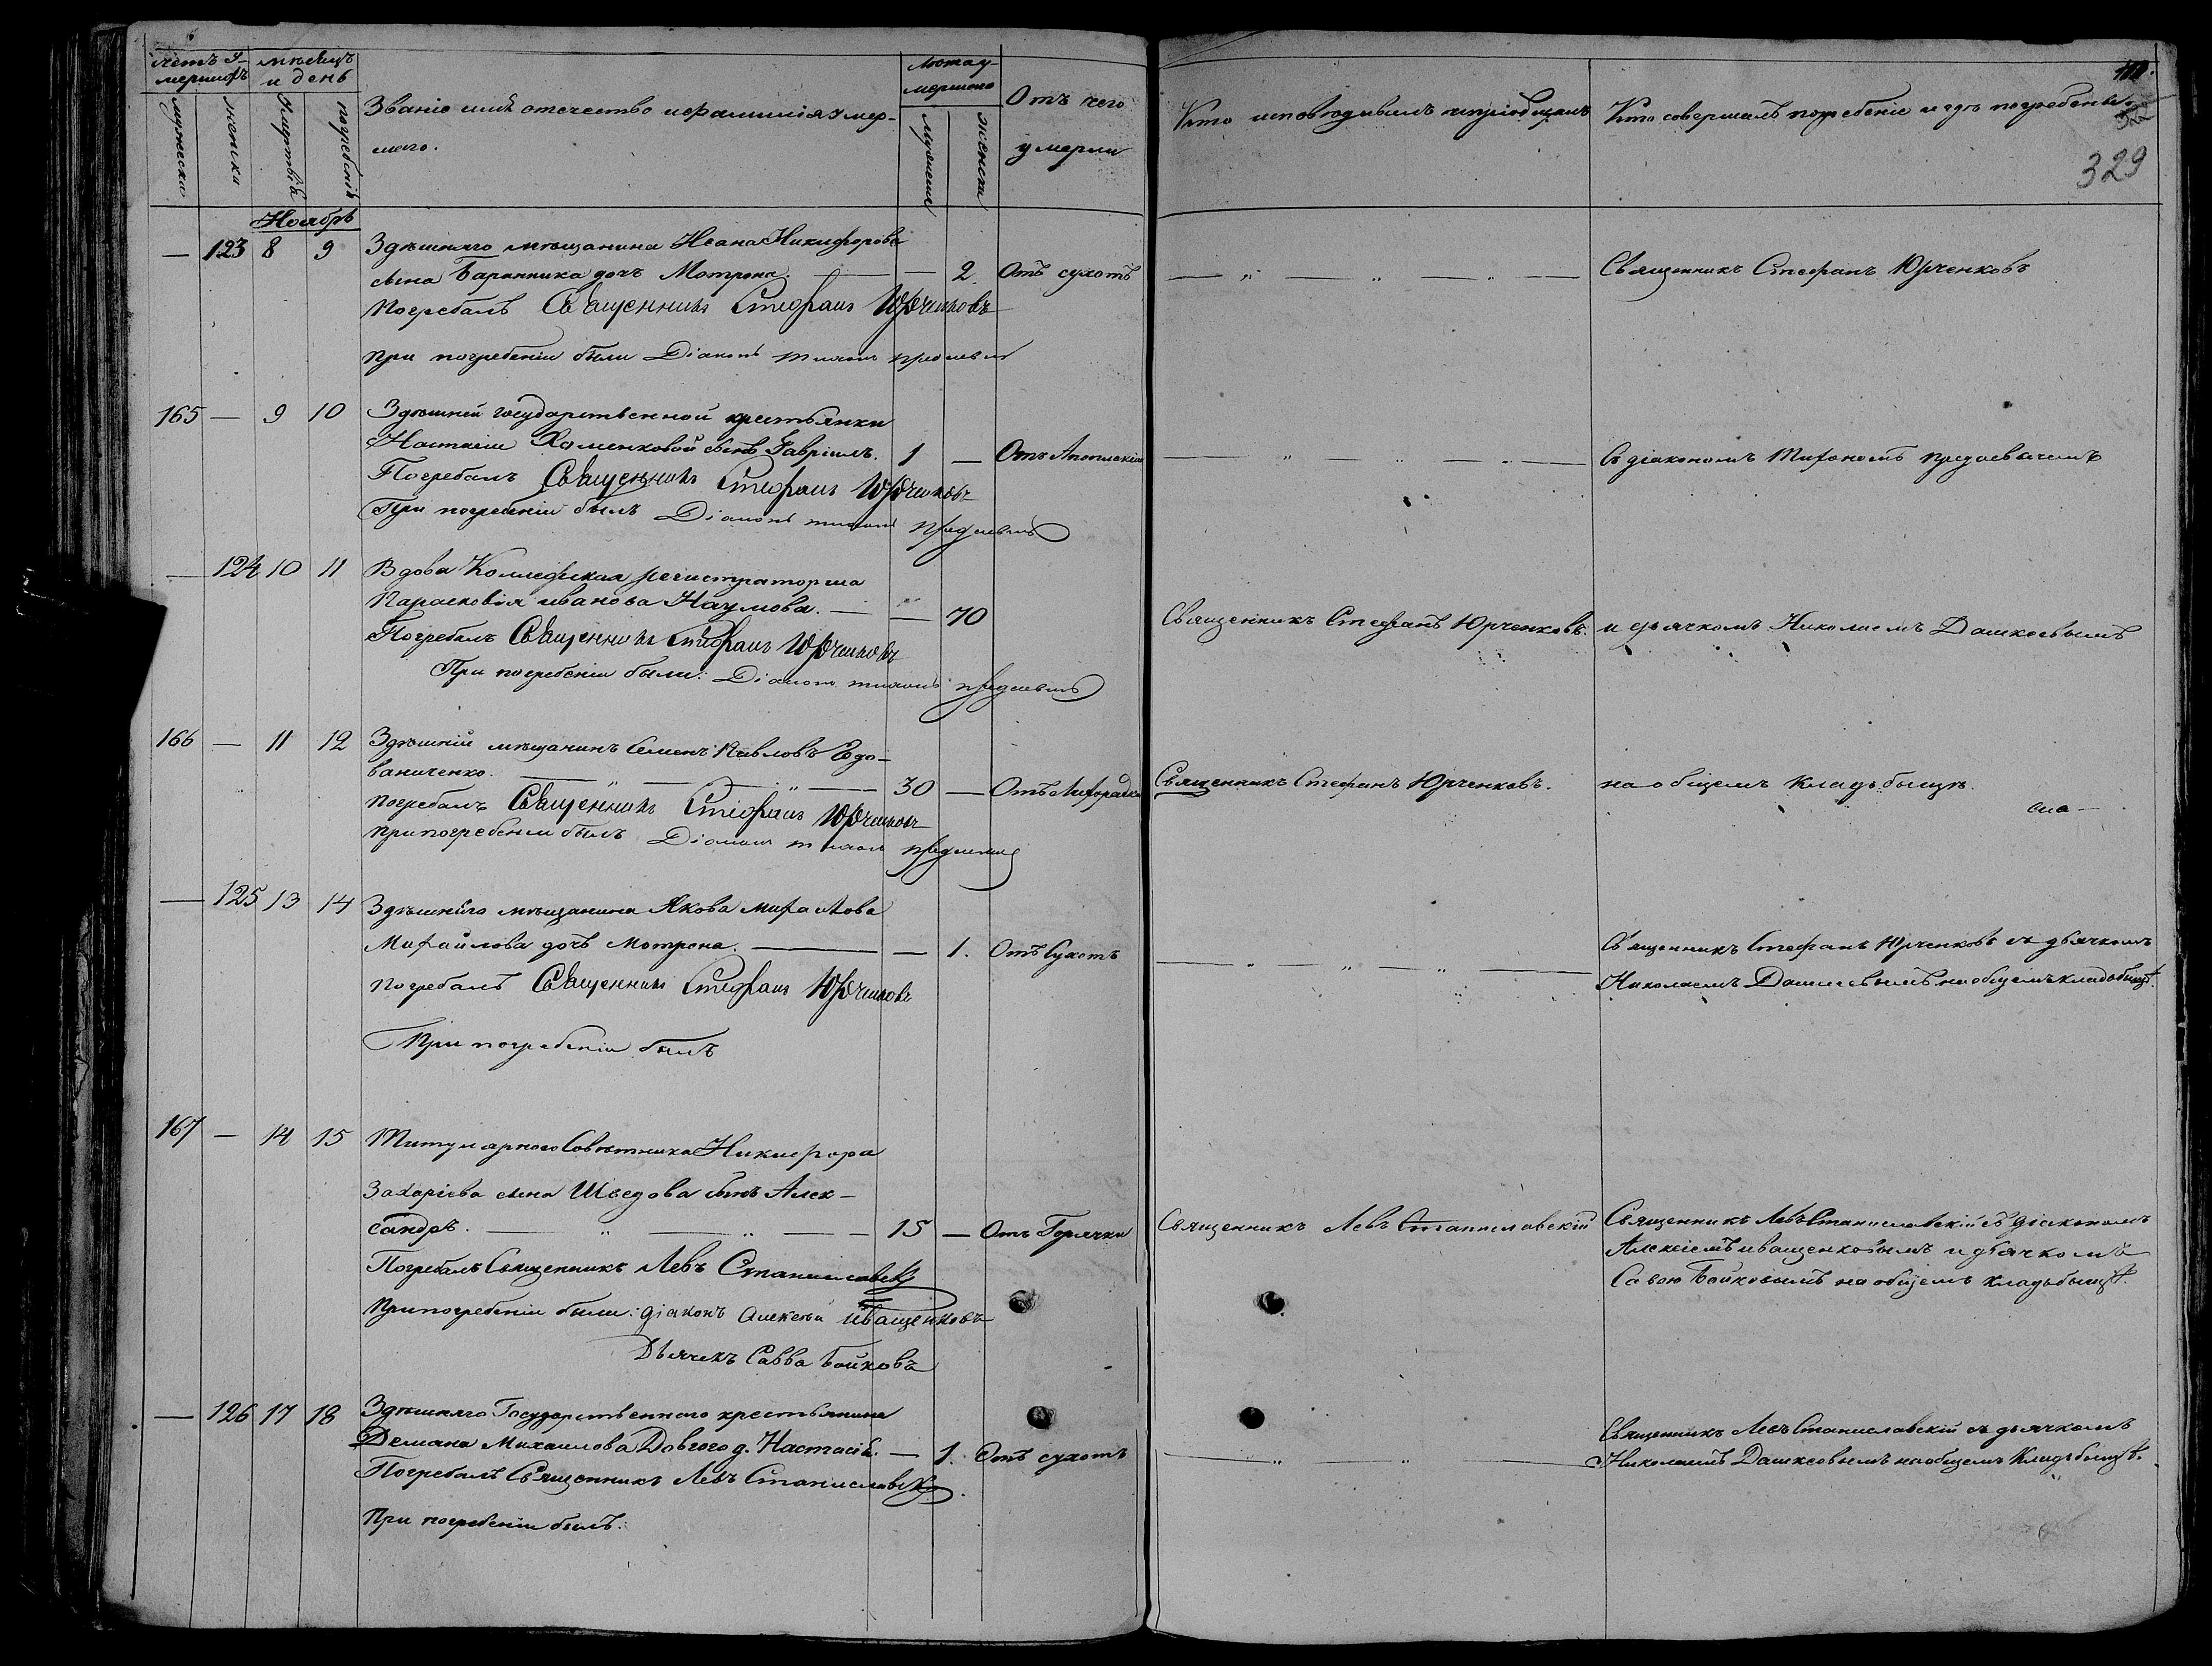 Счетъ у-
мершихъ
мѣсяцъ
и день
Званіе имя отечество и фамилія умер-
шаго.
Лѣта у-
мершаго
Отъ чего
умерли
Кто исповѣдывалъ и пріобщалъ
Кто совершалъ погребеніе и гдѣ погребены.
мужеска
женска
смерти
погребенія
мужеска
женска
329
Ноябрь
— 123 8 9 Здѣшняго мѣщанина Ивана Никифорова
сына Баранника дочь Мотрона. — — 2. Отъ сухотъ — „ — „ — „ — Священникъ Стефанъ Юрченковъ
Погребалъ Священникъ Стефанъ Юрченковъ
При погребеніи были Діаконъ Тихонъ
165 — 9 10 Здѣшней государственной крестьянки
Настасіи Хоменковой сынъ Гавріилъ. 1 — — „ — „ — „ — Съ діакономъ Тихономъ
Погребалъ Священникъ Стефанъ Юрченковъ
При погребеніи былъ Діаконъ Тихонъ
— 124 10 11 Вдова Коллежская регистраторша
Парасковія иванова Наумова. — — 70 Священникъ Стефанъ Юрченковъ. и дьячкомъ Николаемъ Дашкеевымъ
Погребалъ Священникъ Стефанъ Юрченковъ
При погребеніи были: Діаконъ Тихонъ
166 — 11 12 Здѣшній мѣщанинъ Семенъ Павловъ Вдо-
виченко. — „ — „ — 30 — Отъ Лихорадки Священникъ Стефанъ Юрченковъ. на общемъ кладьбищѣ.
Погребалъ Священникъ Стефанъ Юрченковъ
При погребеніи былъ Діаконъ Тихонъ
— 125 13 14 Здѣшняго мѣщанина Якова
Михайлова дочь Мотрона. — — 1. Отъ Сухотъ — „ — „ — „ — Священникъ Стефанъ Юрченковъ съ дьячкомъ
Николаемъ Дашкеевымъ на общемъ кладьбищѣ.
Погребалъ Священникъ Стефанъ Юрченковъ
При погребеніи былъ
167 — 14 15 Титулярнаго Совѣтника Никифора
Захаріева сына Шведова сынъ Алек-
сандръ. — „ — „ — 15 — Отъ Горячки Священникъ Левъ Станиславскій Священникъ Левъ Станиславскій съ діакономъ
Алексіемъ иващенковымъ и дьячкомъ
Савою Бойковымъ на общемъ кладьбищѣ.
Погребалъ Священникъ Левъ Станиславскій
При погребеніи были: діаконъ Алексѣй иващенковъ
Дьячекъ Савва Бойковъ
— 126 17 18 Здѣшняго Государственнаго крестьянина
Демяна Михаилова Довгого д. Настасія. — 1. Отъ сухотъ — „ — „ — Священникъ Левъ Станиславскій съ дьячкомъ
Николаемъ Дашкеевымъ на общемъ Кладьбищѣ.
Погребалъ Священникъ Левъ Станиславскій.
При погребеніи былъ: